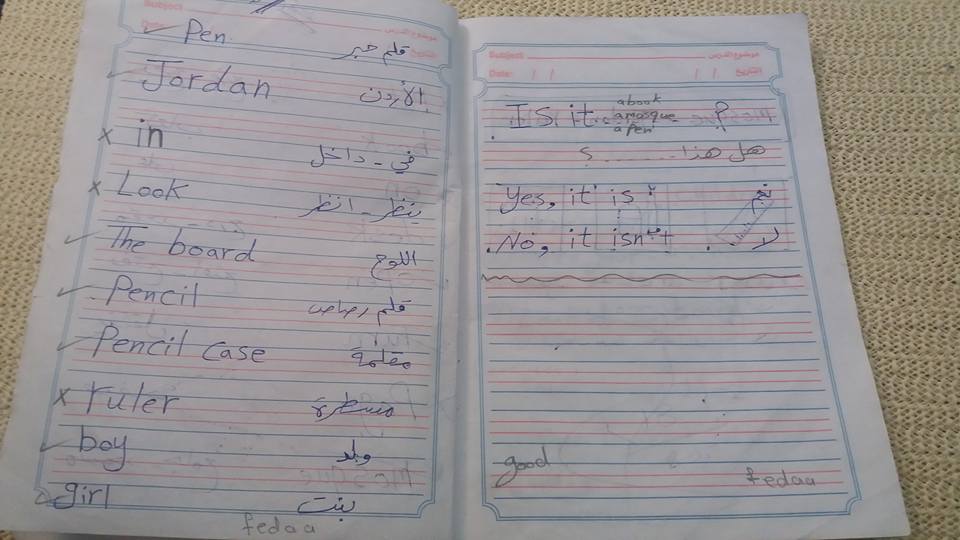 Subject
Date:
Pen قلم حبر
Jordan الأردن
in في - داخل
Look ينظر - انظر
The board اللوح
Pencil قلم رصاص
Pencil case مقلمة
ruler مسطرة
boy ولد
girl بنت
fedaa
Subject موضوع الدرس
Date: / / / / التاريخ
Is it a book ?
a mosque
a pen
هل هذا ......... ؟
Yes, it is نعم
No, it isn't . لا
good
fedaa